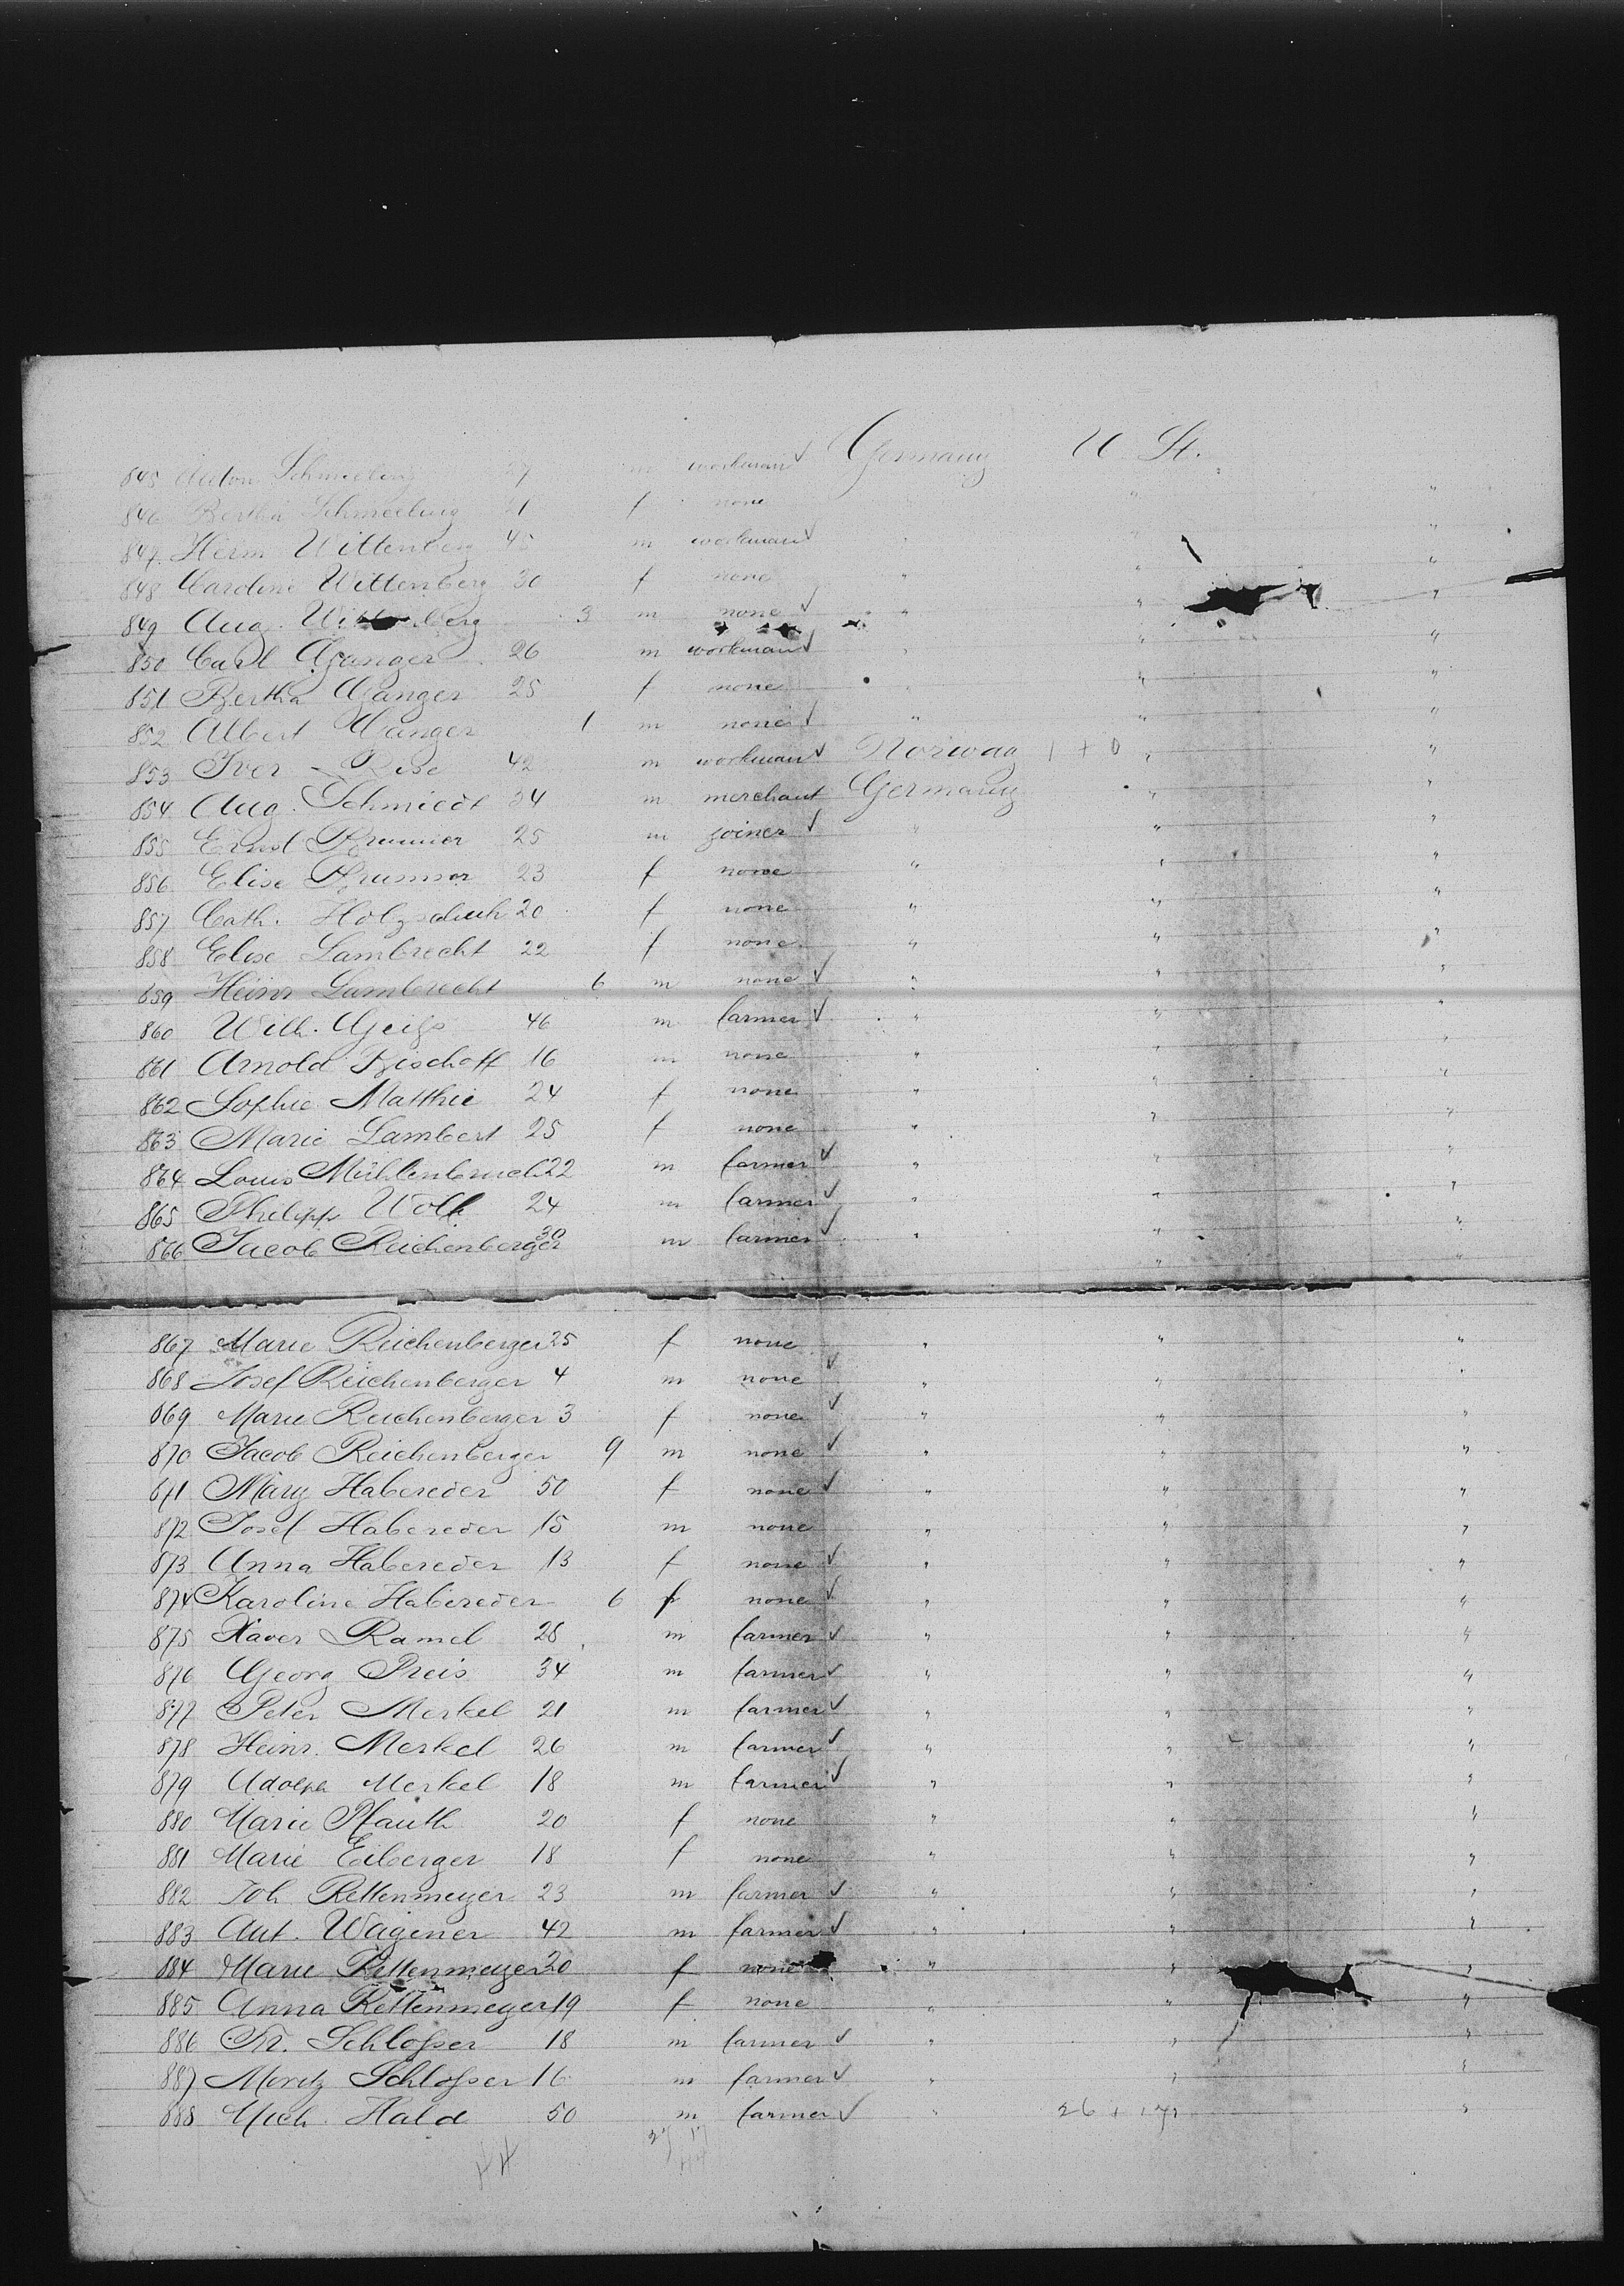 845 Anton Schmeling 27 m workman ✓ Germany U. St.
846 Bertha Schmeling 21 f none " "
847. Helm Wittenberg 45 m workman ✓ " " "
848 Caroline Wittenberg 30 f none " " "
849 Aug. Wittenberg 3 m none ✓ " " "
850 Carl Ganger 26 m workman ✓ " " "
851 Bertha Ganger 25 f none " " "
852 Albert Ganger 1 m none ✓ " " "
853 Iver Rise 42 m workman ✓ Norway 1 + 0 " "
854 Aug. Schmiedt 34 m merchant Germany " "
855 Ernst Brunner 25 m joiner ✓ " " "
856. Elise Brunner 23 f none " " "
857 Cath. Holzschuh 20 f none " " "
858 Elise Lambrecht 22 f none " " "
859 Heinr Lambrecht 6 m none ✓ " " "
860 Wilh. Geiss 46 m farmer ✓ " " "
861 Arnold Bischoff 16 m none " " "
862 Sophie Matthie 24 f none " " "
863 Marie Lambert 25 f none " " "
864 Louis Mühlenbruch 22 m farmer ✓ " " "
865 Philipp Wolf 24 m farmer ✓ " " "
866 Jacob Reichenberger 30 m farmer ✓ " " "
867 Marie Reichenberger 25 f none " " "
868 Josef Reichenberger 4 m none ✓ " " "
869 Marie Reichenberger 3 f none ✓ " " "
870 Jacob Reichenberger 9 m none ✓ " " "
871 Mary Habereder 50 f none ✓ " " "
872 Josef Habereder 15 m none " " "
873 Anna Habereder 13 f none ✓ " " "
874 Karoline Habereder 6 f none ✓ " " "
875 Xaver Ramel 28 m farmer ✓ " " "
876 Georg Preis 34 m farmer ✓ " " "
877 Peter Merkel 21 m farmer ✓ " " "
878 Heinr. Merkel 26 m farmer ✓ " " "
879 Adolph Merkel 18 m farmer ✓ " " "
880 Marie Pfauth 20 f none " " "
881 Marie Eiberger 18 f none " " "
882 Joh Rettenmeyer 23 m farmer ✓ " " "
883 Ant. Wagener 42 m farmer ✓ " " "
884 Marie Rettenmeyer 20 f none " " "
885 Anna Rettenmeyer 19 f none " " "
886 Fr. Schlosser 18 m farmer ✓ " " "
887 Moritz Schlosser 16 m farmer ✓ " " "
888 Mich. Hald 50 m farmer ✓ " 26 + 17 " "
44 27 17
44